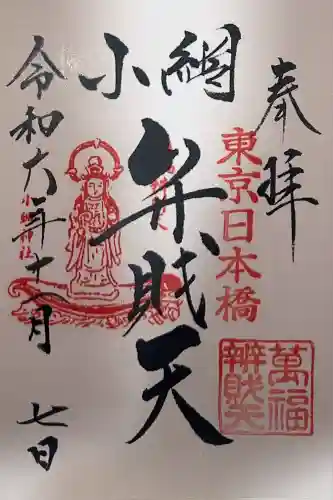 奉拝
東京日本橋
萬福
辨財天
小網
弁財天
令和六年十一月
七日
小網神社